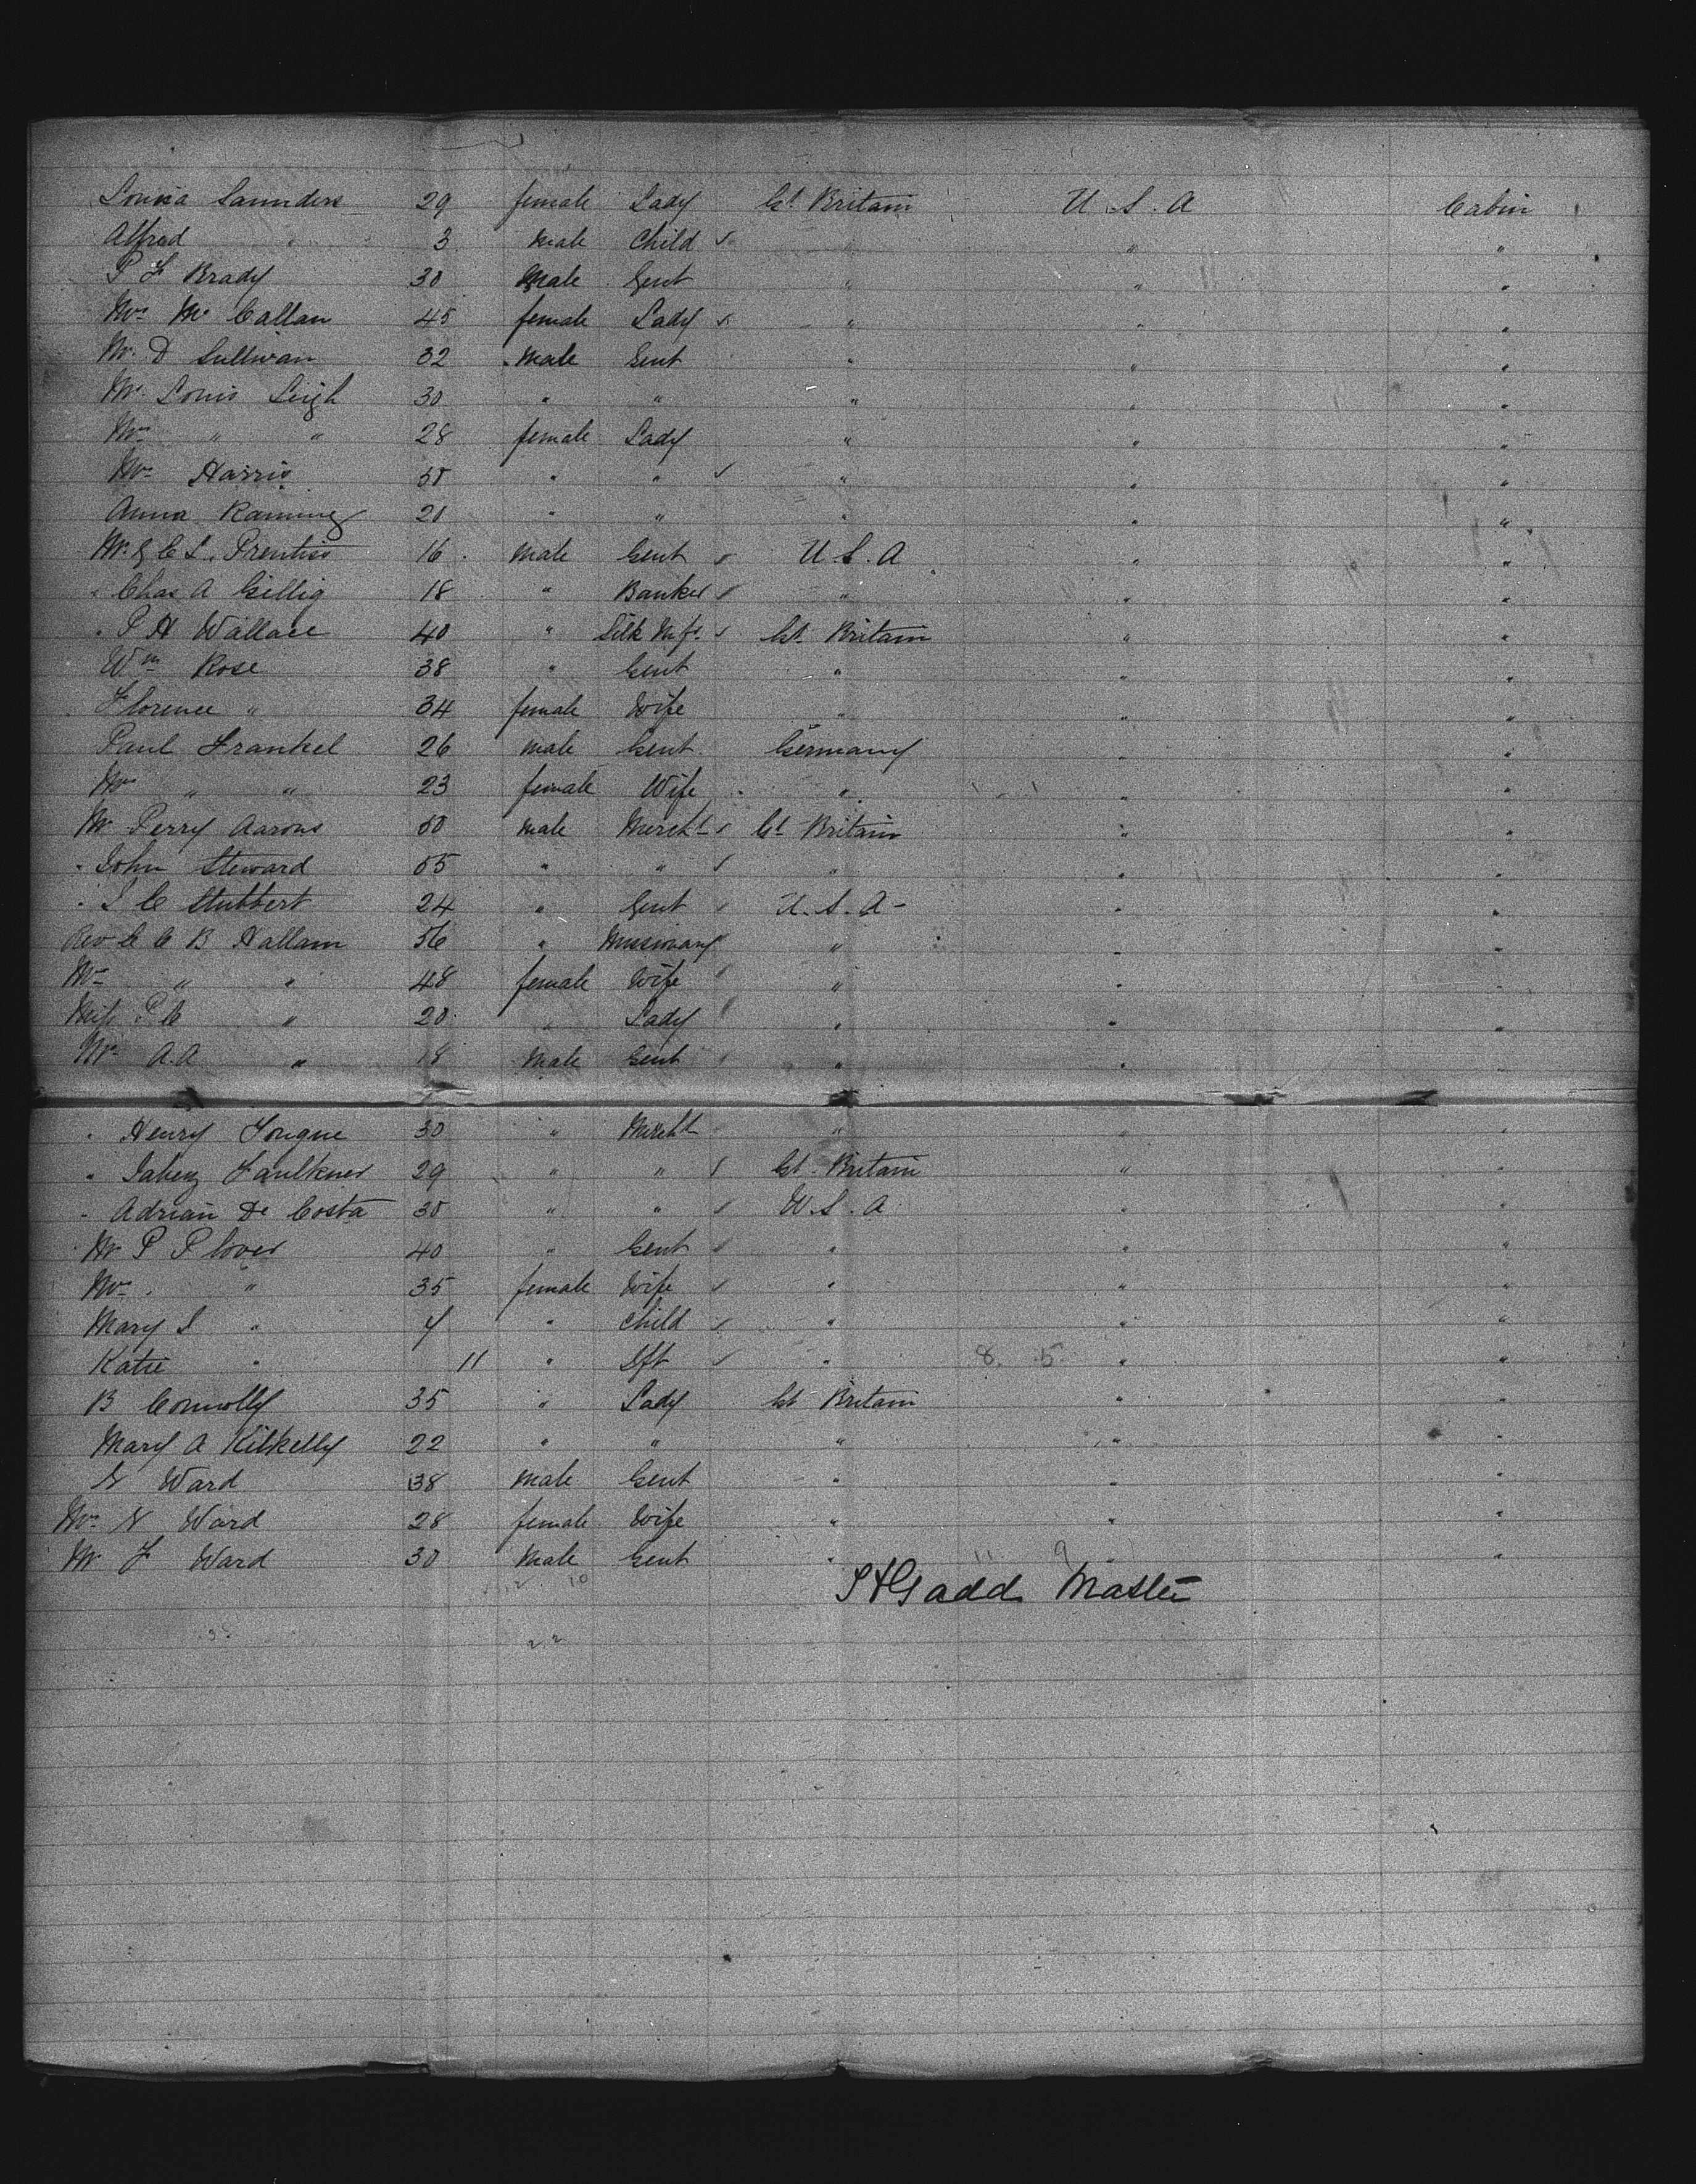 Louisa Saunders 29 female Lady Gt. Britain U.S.A Cabin
Alfred " 3 male Child " " "
P F Brady 30 Male Gent " " "
Mrs Mc Callan 45 female Lady " " "
Mr. D Sullivan 32 male Gent " " "
Mr. Louis Leigh 30 " " " " "
Mrs " " 28 female Lady " " "
Mrs Harris 50 " " " " "
Anna Ramming 20 " " " " "
Mr. G C L. Prentiss 16 male Gent U.S.A " "
" Chas A Gillig 18 " Banker " " "
" P H Wallace 40 " Silk Mfr. Gt. Britain " "
Wm Rose 38 " Gent " " "
Florence " 34 female Wife " " "
Paul Frankel 26 male Gent Germany " "
Mrs " " 23 female Wife " " "
Mr Perry Aarons 50 male Mercht Gt Britain " "
" John Steward 55 " " " " "
" J C Stubbert 24 " Gent U.S.A - " "
Rev C C B Hallam 56 " Missionary " " "
Mrs " " 48 female Wife " " "
Miss P C " 20 " Lady " " "
Mr A.A " 18 Male Gent " " "
" Henry Tongue 30 " Mercht " " "
" Jabez Faulkner 29 " " Gt. Britain " "
" Adrian De Costa 30 " " U.S.A " "
Mr P Plover 40 " Gent " " "
Mrs. " 35 female Wife " " "
Mary I " 4 " Child " " "
Katie " 11 " Ift " 8. 5 " "
B Connolly 35 " Lady Gt Britain " "
Mary A Kilkelly 22 " " " " "
N Ward 38 male Gent " " "
Mrs N Ward 28 female Wife " " "
Mr F Ward 30 Male Gent " 11 9 " "
12. 10 S H Gadd Master
22